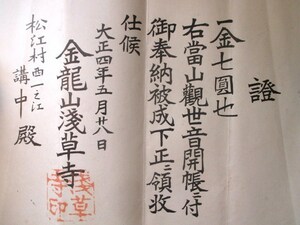 證
一金七圓也
右當山觀世音開帳ニ付
御奉納被成下正ニ領收
仕候
大正四年五月廿八日
金龍山淺草寺
淺草寺印
松江村西一之江
講中殿